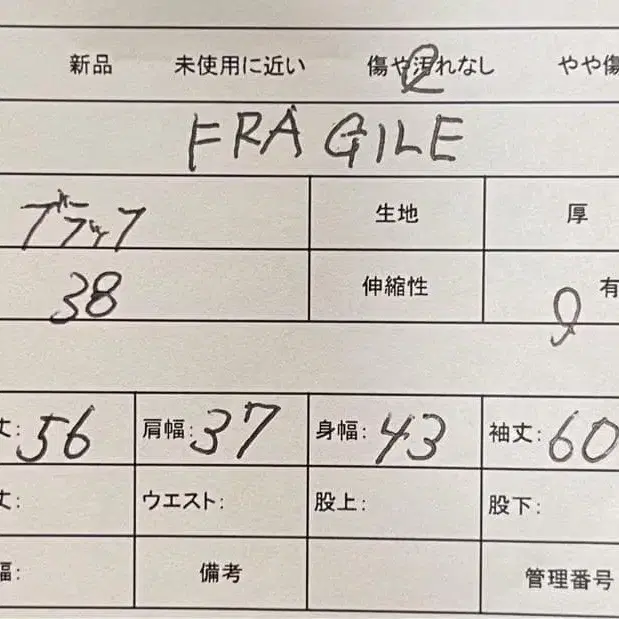 新品 未使用に近い 傷や汚れなし やや傷
FRAGILE
ブラック 生地 厚
38 伸縮性 有
丈: 56 肩幅: 37 身幅: 43 袖丈: 60
丈: ウエスト: 股上: 股下:
幅: 備考 管理番号